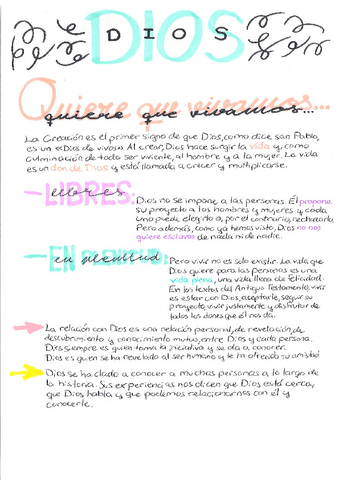 DIOS
Quiere que vivamos...
La Creación es el primer signo de que Dios, como dice san Pablo,
es un «Dios de vivos». Al crear, Dios hace surgir la vida y, como
culminación de todo ser viviente, al hombre y a la mujer. La vida
es un don de Dios y está llamada a crecer y multiplicarse.
LIBRES.
Dios no se impone a las personas. Él propone
su proyecto a los hombres y mujeres y cada
uno puede elegirlo o, por el contrario, rechazarlo.
Pero además, como ya hemos visto, Dios no nos
quiere esclavos de nada ni de nadie.
EN plenitud.
Pero vivir no es solo existir. La vida que
Dios quiere para las personas es una
vida plena, una vida llena de felicidad.
En los textos del Antiguo Testamento, vivir
es estar con Dios, aceptarle, seguir su
proyecto, vivir justamente y disfrutar de
todos los dones que él nos da.
La relación con Dios es una relación personal, de revelación, de
descubrimiento y conocimiento mutuo, entre Dios y cada persona.
Dios siempre es quien toma la iniciativa y se da a conocer.
Dios es quien se ha revelado al ser humano y le ha ofrecido su amistad
Dios se ha dado a conocer a muchas personas a lo largo de
la historia. Sus experiencias nos dicen que Dios está cerca,
que Dios habla y que podemos relacionarnos con él y
conocerle.